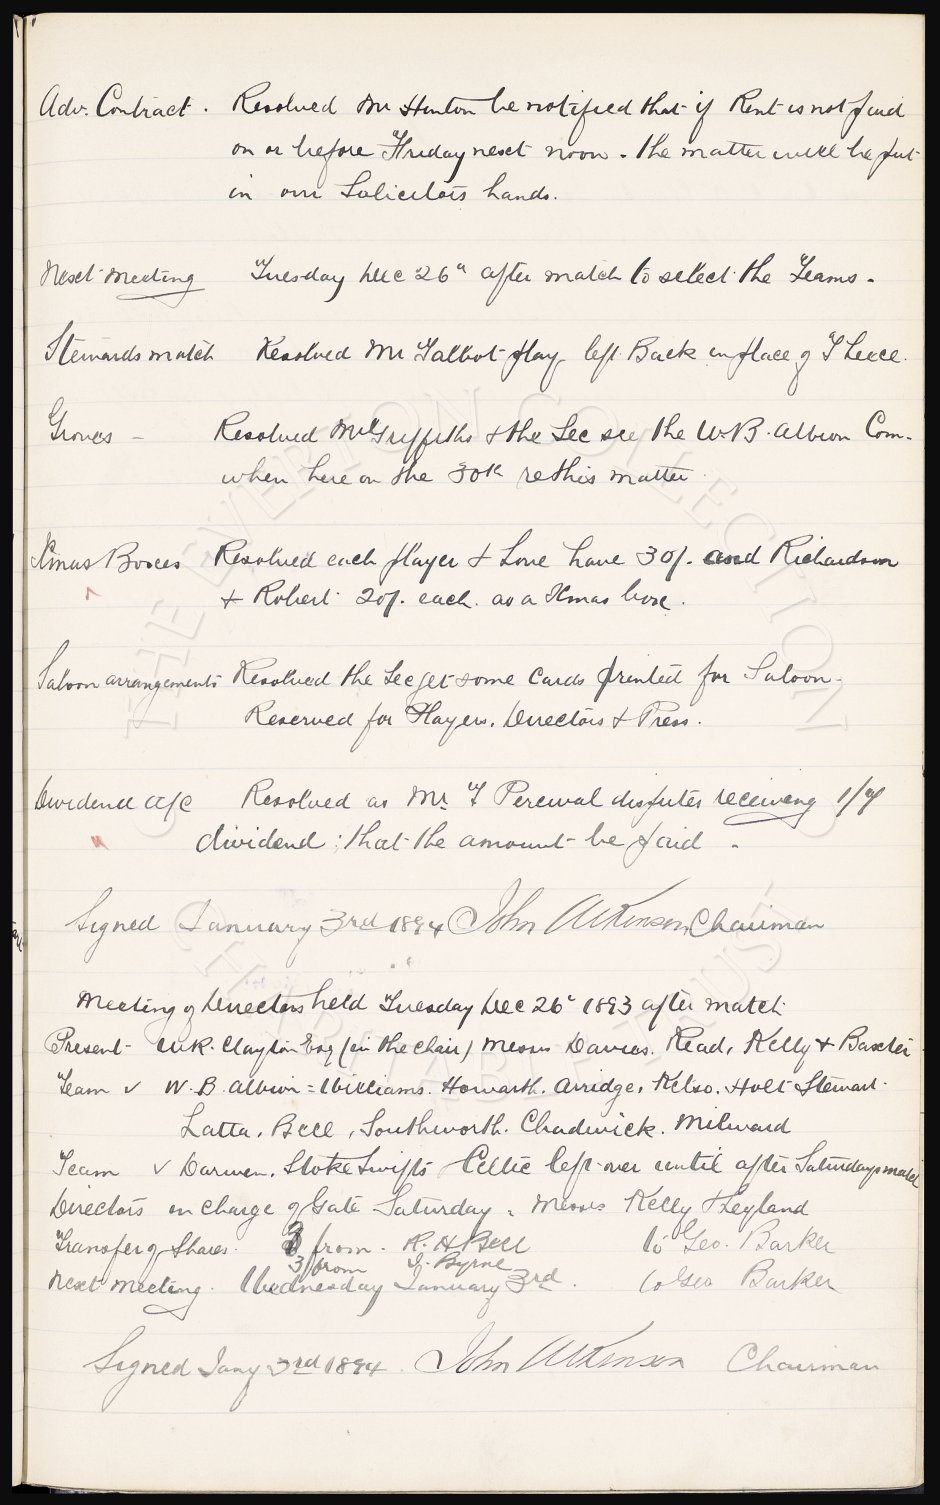 Adv. Contract. Resolved Mr Hinton be notified that if Rent is not paid
on or before Friday next noon. the matter will be put
in our Solicitors hands.
Next Meeting Tuesday Dec 26th after match to select the Teams.
Stewards match Resolved Mr Talbot play left Back in place of T Leece.
Groves – Resolved Mr Griffiths & the Sec see the W.B. Albion Com.
when here on the 30th re this matter
Xmas Boxes Resolved each player & Lone have 30/. and Richardson
& Robert 20/. each. as a Xmas box.
Saloon arrangements Resolved the Sec get some Cards printed for Saloon.
Reserved for Players, Directors & Press.
Dividend a/c Resolved as Mr. T Percival disputes receiving 1/7
dividend; that the amount be paid.
Signed January 3rd 1894 John Atkinson Chairman
Meeting of Directors held Tuesday Dec 26th 1893 after match
Present W.R. Clayton Esq (in the chair) Messrs Davies. Read, Kelly & Baxter
Team v W.B. Albion = Williams. Howarth. Arridge, Kelso. Holt Stewart.
Latta, Bell, Southworth. Chadwick. Milward
Team v Darwen, Stoke Swifts Celtic left over until after Saturdays match
Directors in charge of Gate Saturday = Messrs Kelly & Leyland
Transfer of Shares. 3 from. R. H Bell to Geo. Barker
3 from Byrne
Next meeting. Wednesday January 3rd. to Geo Barker
Signed Jany 3rd 1894. John Atkinson Chairman
THE EVERTON COLLECTION
CHARITABLE TRUST